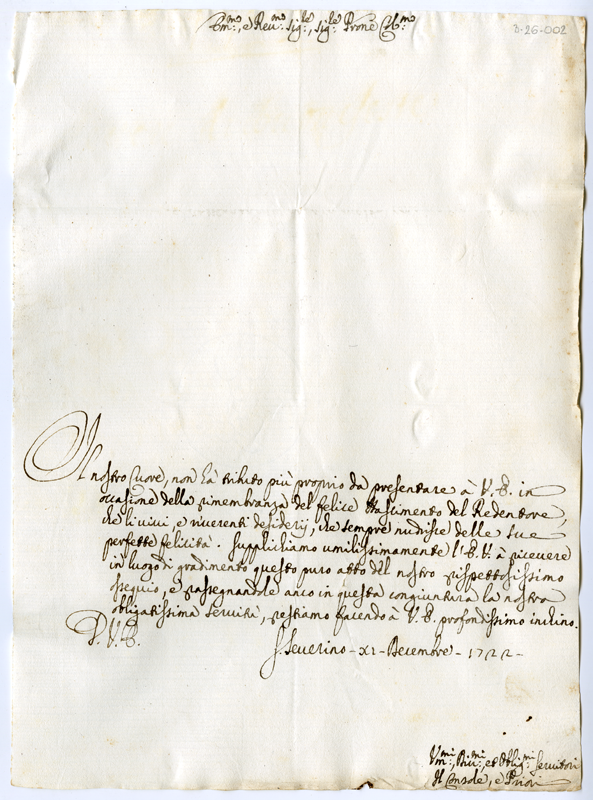 Em:mo, e Reu:mo Sig:re, Sig:re Prone Col:mo
3-26-002
Il nostro Cuore, non hà tributo più proprio da presentare à V. E. in
occasione della rimembranza del felice Nascimento del Redentore,
che li viui, e riuerenti desiderij, che sempre nudrisce delle sue
perfette felicità. Supplichiamo umilissimamente l'E. V. à riceuere
in luogo di gradimento questo puro atto del nostro rispettosissimo
ossequio, e rassegnandole anco in questa congiuntura la nostra
obligatissima seruitù, restiamo facendo à V. E. profondissimo inchino.
D. V. E.
S. Seuerino - XI - Decembre - 1722 -
Vm:mi Diu:mi et Oblig:mi Seruitori
Il Console, e Priori